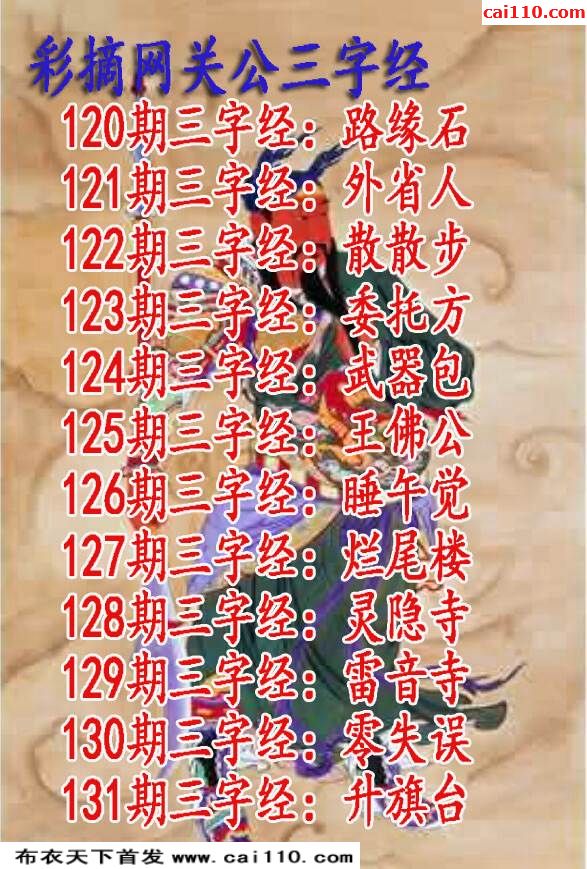 cai110.com
彩摘网关公三字经
120期三字经：路缘石
121期三字经：外省人
122期三字经：散散步
123期三字经：委托方
124期三字经：武器包
125期三字经：王佛公
126期三字经：睡午觉
127期三字经：烂尾楼
128期三字经：灵隐寺
129期三字经：雷音寺
130期三字经：零失误
131期三字经：升旗台
布衣天下首发 www.cai110.com